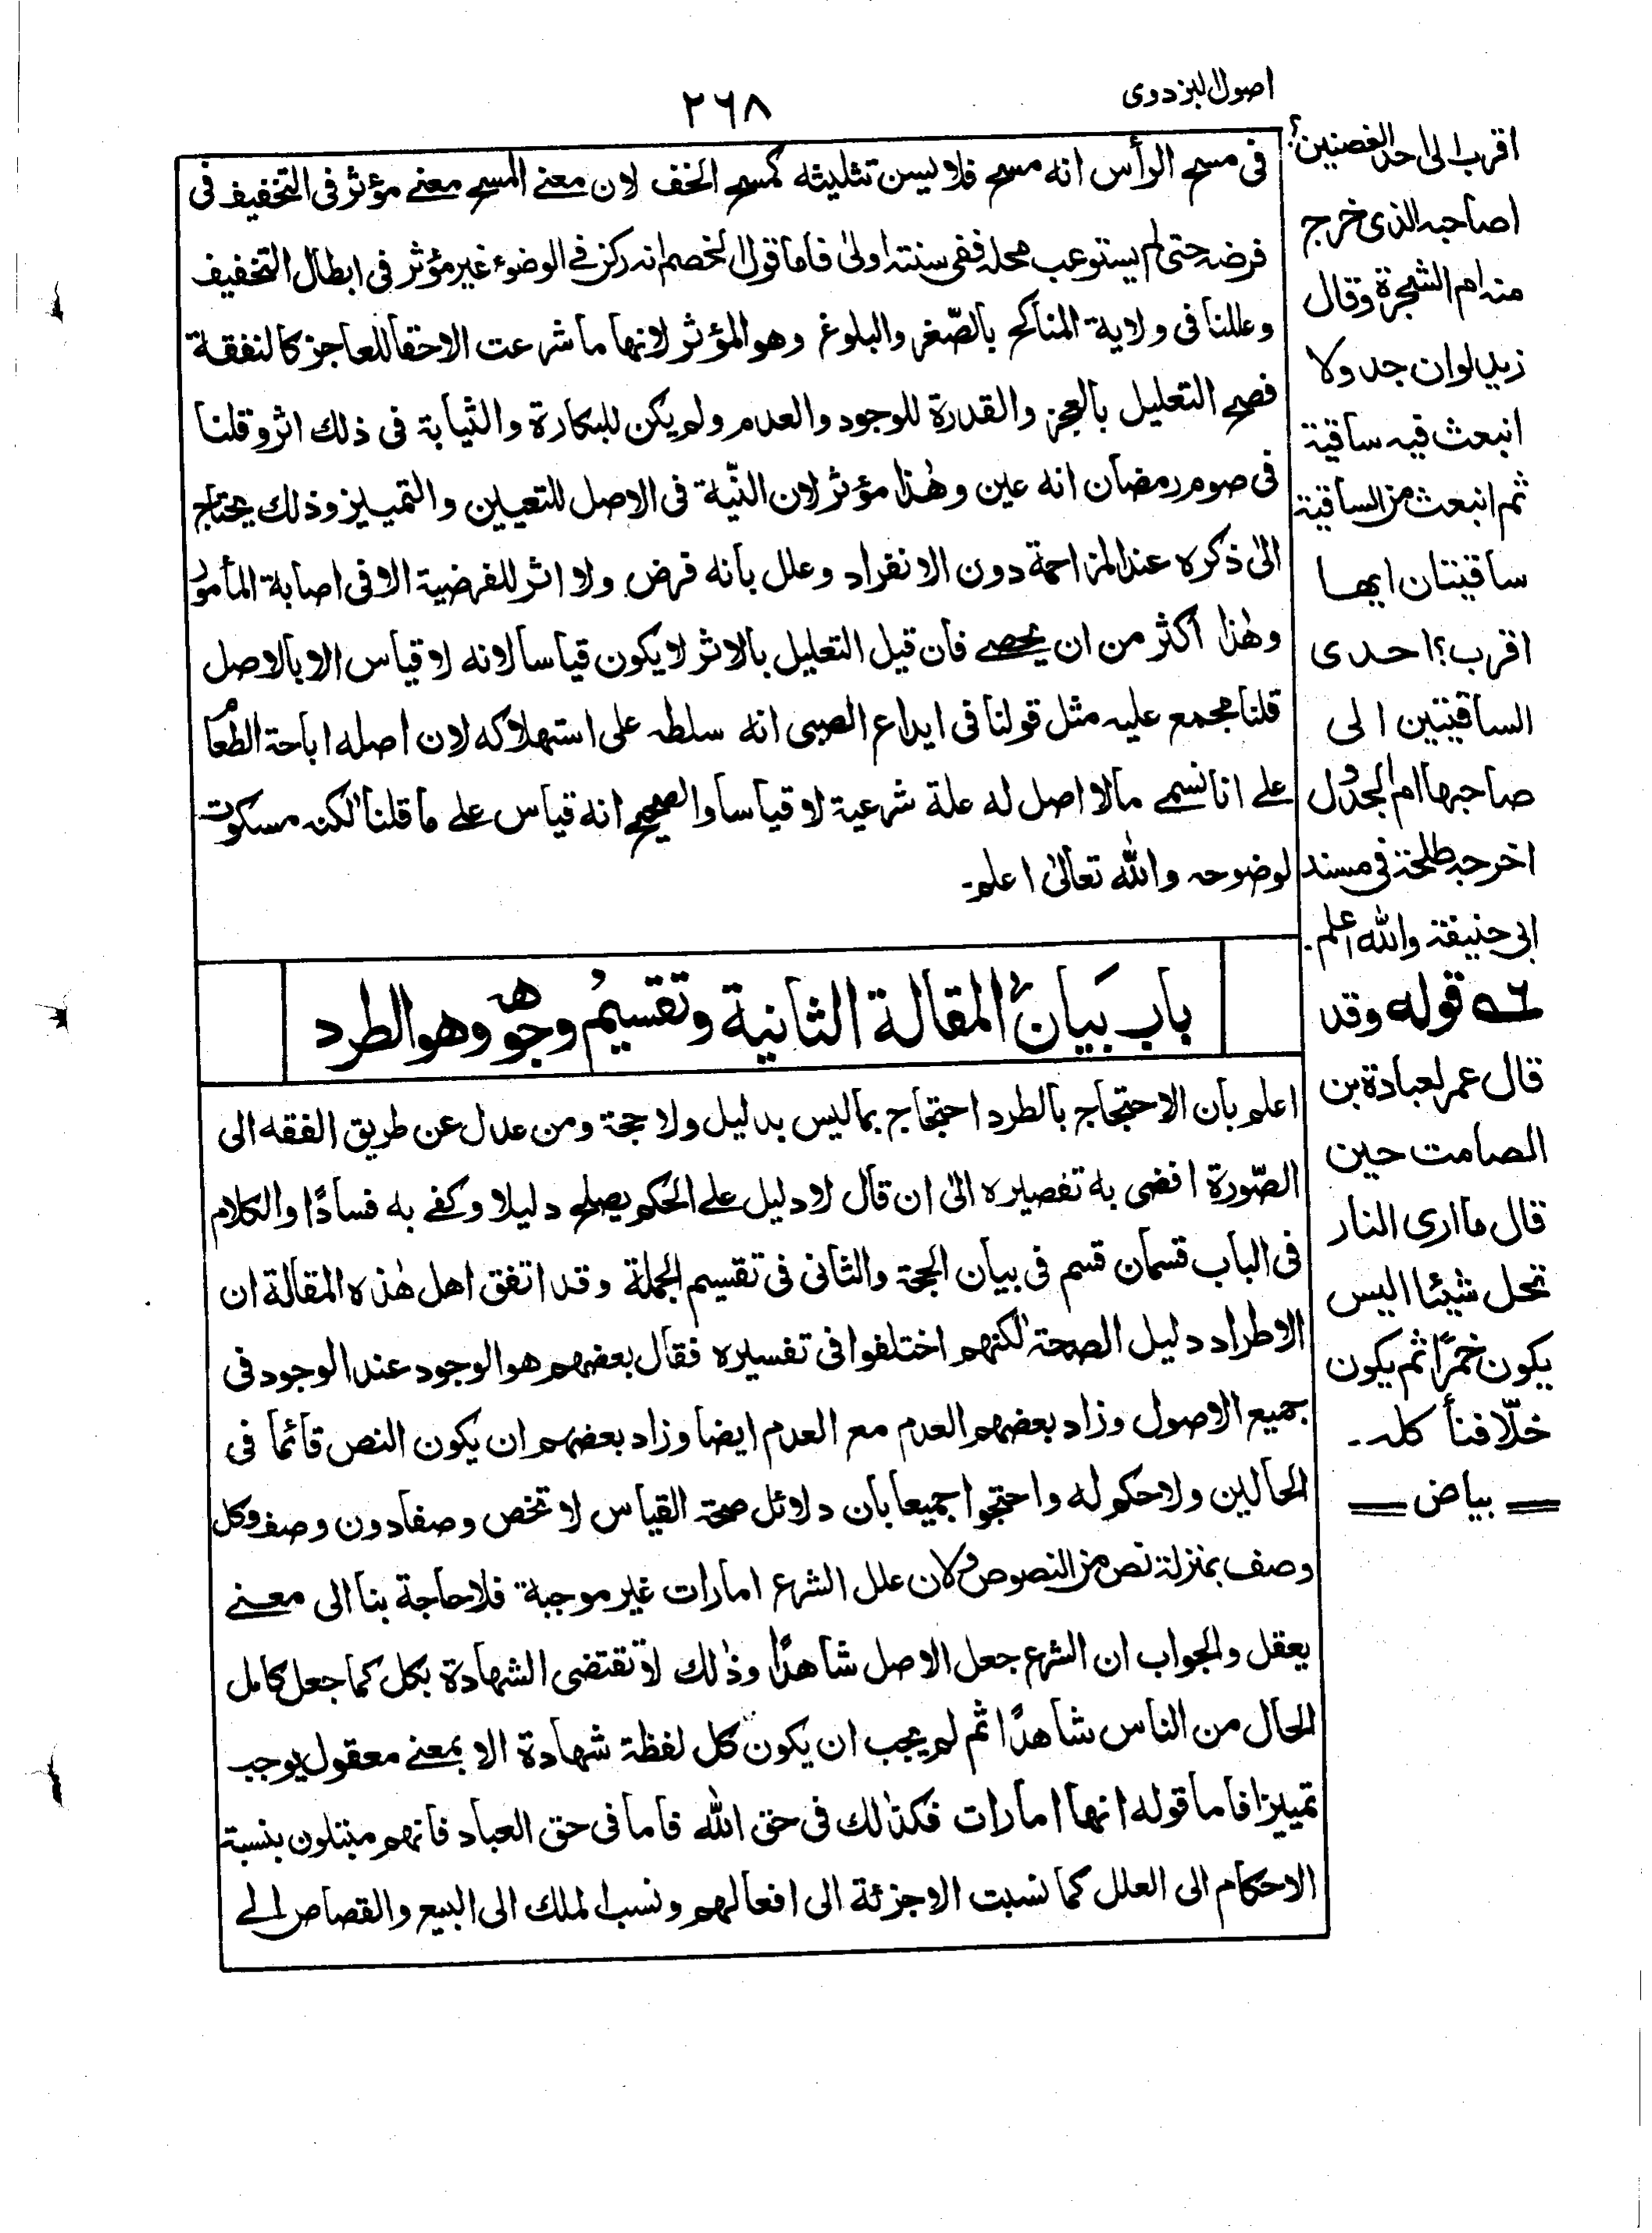 اصول البزدوی
۲۶۸
فی مسح الرأس انه مسح فلا یسن تثلیثه کمسح الخف لان معنے المسح معنے مؤثر فی التخفیف فی
فرضہ حتی لم یستوعب محلہ ففی سنتہ اولیٰ فاما قول الخصم انہ رکن فے الوضوء غیر مؤثر فی ابطال التخفیف
وعللنا فی ولایة المناکح بالصّغر والبلوغ وهو المؤثر لانها ما شرعت الا حقا للعاجز کالنفقة
فصح التعلیل بالعجز والقدرة للوجود والعدم ولم یکن للبکارة والثیابة فی ذلك اثر وقلنا
فی صوم رمضان انه عین وهٰذا مؤثر لان النّیة فی الاصل للتعیین والتمییز وذلك یحتاج
الیٰ ذکره عند المزاحمة دون الانفراد وعلل بانه فرض ولا اثر للفرضیة الا فی اصابة المأمور
وهٰذا اکثر من ان یحصے فان قیل التعلیل بالاثر لا یکون قیاسا لانه لا قیاس الا بالاصل
قلنا مجمع علیہ مثل قولنا فی ایداع الصبی انه سلطہ علی استهلاکه لان اصله اباحة الطعام
علے انا نسمے مالا اصل له علة شرعیة لا قیاسا والصحیح انه قیاس علے ما قلنا لٰکنه مسکوت
لوضوحہ والله تعالیٰ اعلم۔
باب بَیان المقالة الثانیة وتقسیم وجوهہ وهو الطرد
اعلم بان الاحتجاج بالطرد احتجاج بما لیس بدلیل ولا حجة ومن عدل عن طریق الفقه الی
الصّورة افضی به تقصیره الیٰ ان قال لا دلیل علے الحکم یصلح دلیلا وکفے به فسادًا والکلام
فی الباب قسمان قسم فی بیان الحجة والثانی فی تقسیم الجملة وقد اتفق اهل هٰذه المقالة ان
الاطراد دلیل الصحة لٰکنهم اختلفوا فی تفسیره فقال بعضهم هو الوجود عند الوجود فی
جمیع الاصول وزاد بعضهم العدم مع العدم ایضا وزاد بعضهم ان یکون النص قائما فی
الحالین ولا حکم له واحتجوا جمیعا بان دلائل صحة القیاس لا تخص وصفا دون وصف وکل
وصف بمنزلة نص من النصوص ولان علل الشرع امارات غیر موجبة فلا حاجة بنا الی معنے
یعقل والجواب ان الشرع جعل الاصل شاهدًا وذٰلك لا تقتضی الشهادة بکل کما جعل کامل
الحال من الناس شاهدًا ثم لم یجب ان یکون کل لفظة شهادة الا بمعنے معقول یوجب
تمییزا فاما قوله انها امارات فکذٰلك فی حق الله فاما فی حق العباد فانهم مبتلون بنسبة
الاحکام الی العلل کما نسبت الاجزئة الی افعالهم ونسب الملك الی البیع والقصاص الے
اقرب الی احد الغصنین؟
اصاحبہ الذی خرج
منہ ام الشجرة وقال
زید لو ان جدولا
انبعث فیہ ساقیة
ثم انبعث من الساقیة
ساقیتان ایهما
اقرب؟ احدی
الساقیتین الی
صاحبها ام الجدول
اخرجہ طلحة فی مسند
ابی حنیفة والله اعلم۔
٦ قوله وقد
قال عمر لعبادة بن
الصامت حین
قال ما اری النار
تحل شیئا الیس
یکون خمرًا ثم یکون
خلّا فنأکلہ۔
بیاض